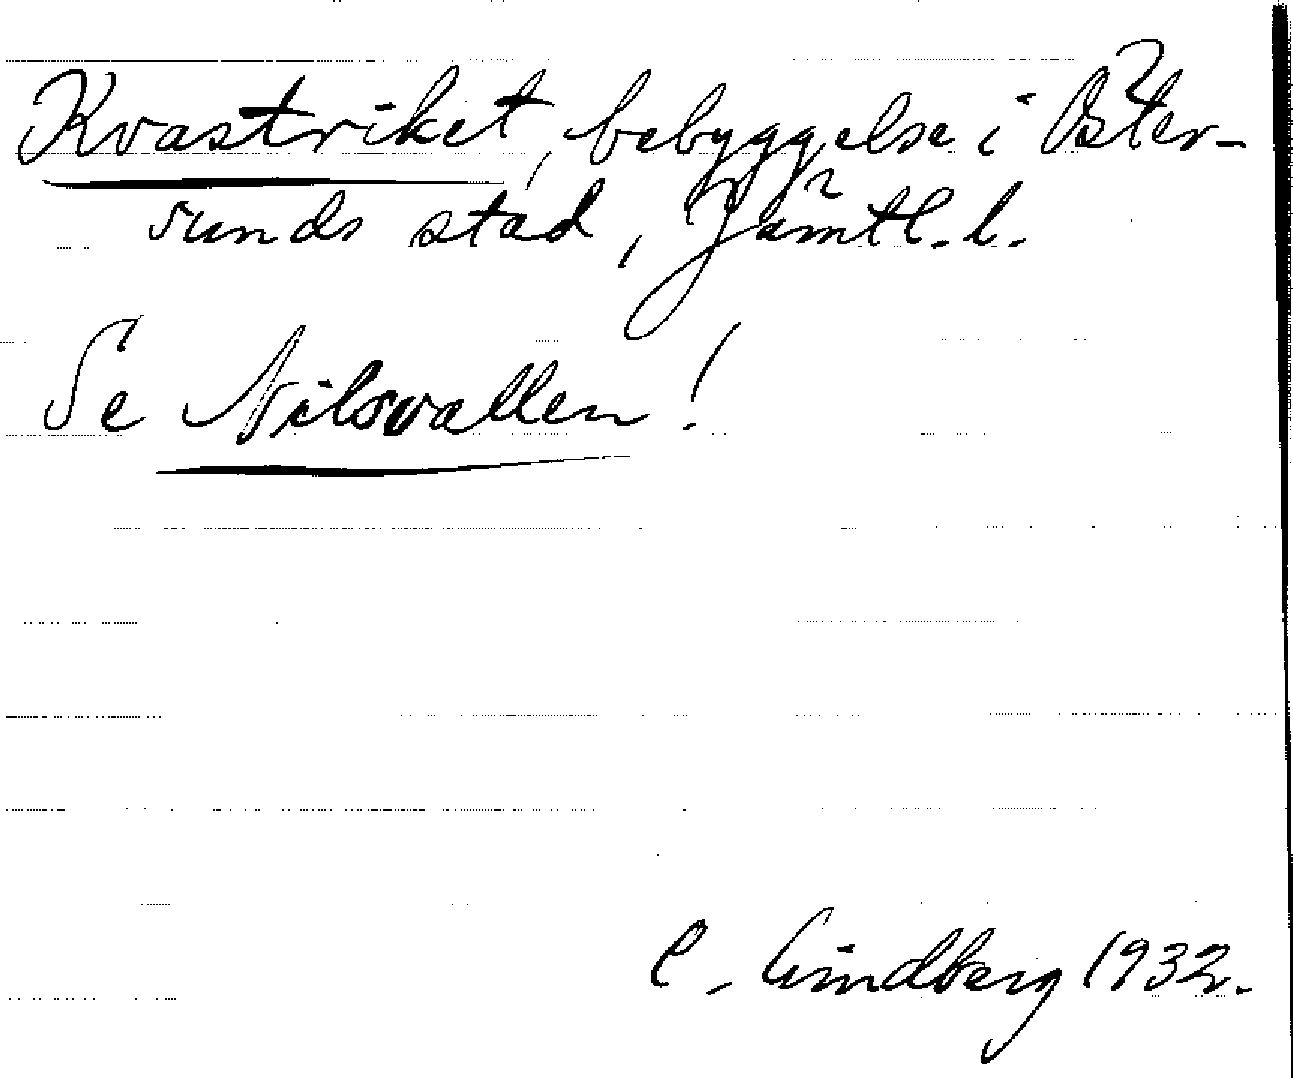 Kvastriket, bebyggelse i Öster-
sunds stad, Jämtl. l.
Se Nilsvallen!
C. Lindberg 1932.